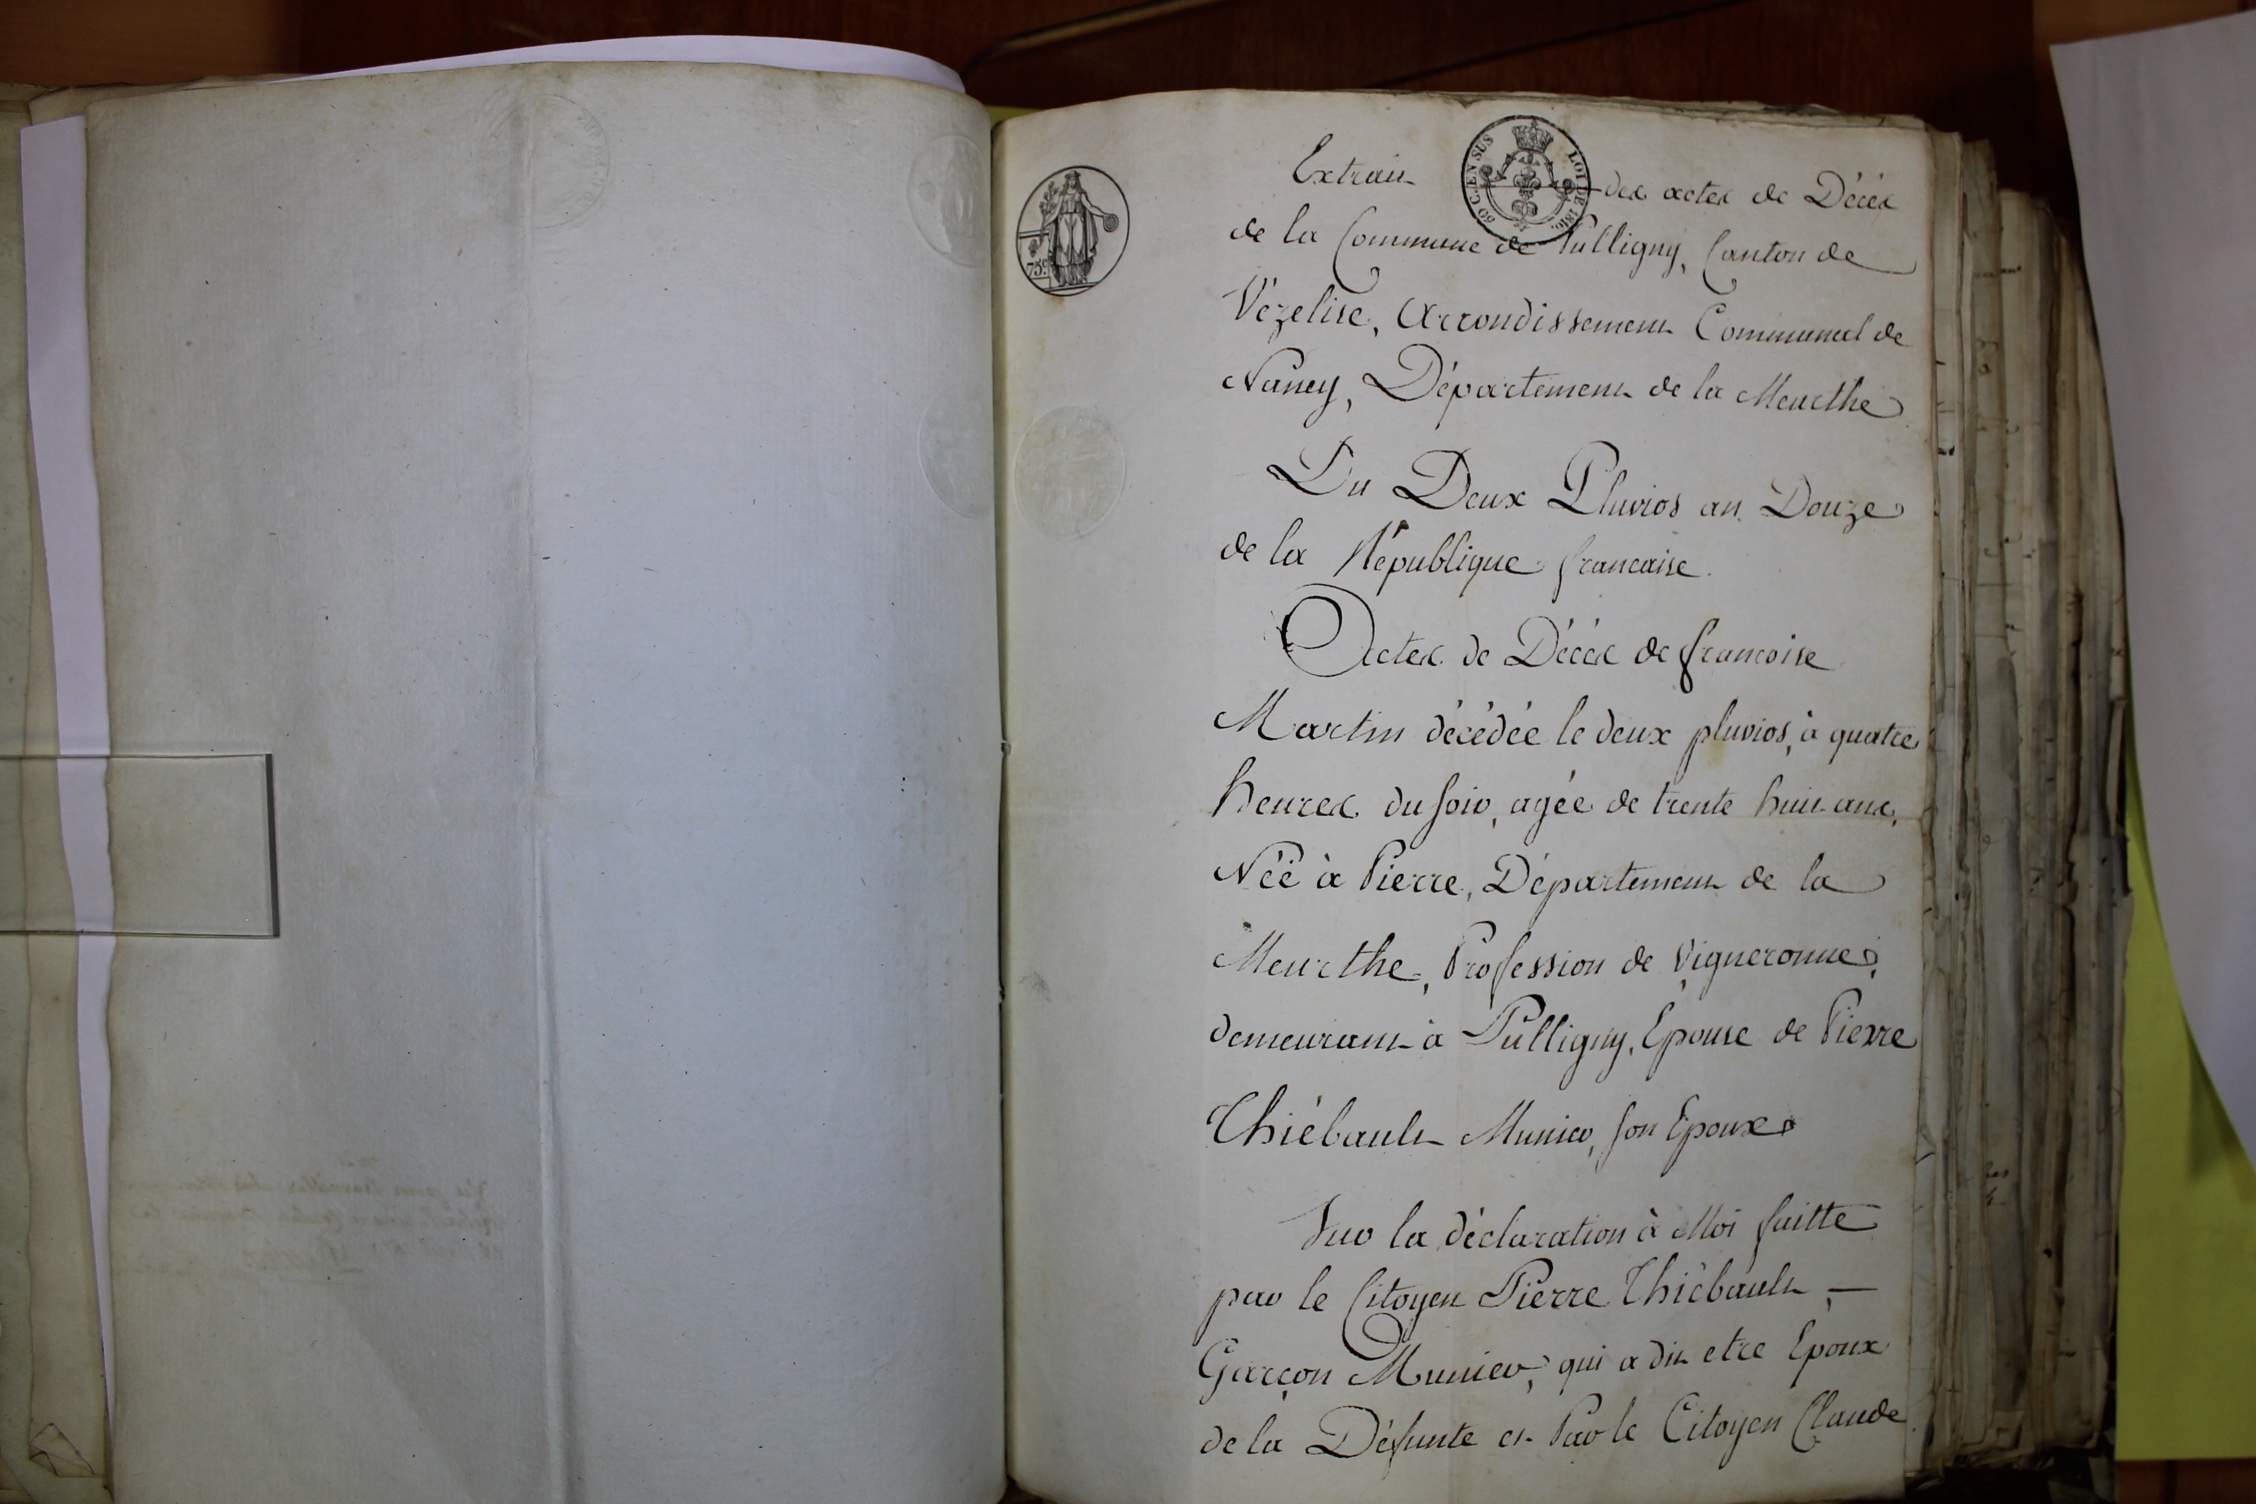 Extrait des actes de Décès
50 C. EN SUS
LOI DE 1816.
75c
de la Commune de Pulligny, Canton de
Vézelise, Arrondissement Communal de
Nancy, Département de la Meurthe
Du Deux Pluvios an Douze
de la République francaise.
Actes de Décès de francoise
Martin décédée le deux pluvios, à quatre
heures du soir, agée de trente huit ans,
Néë à Pierre, Département de la
Meurthe, Profession de Vigneronne,
demeurant à Pulligny, Epouse de Pierre
Thiébault Munier, son Epoux
Sur la déclaration à Moi faitte
par le Citoyen Pierre Thiébault, —
Garçon Munier, qui a dit etre Epoux
de la Défunte et Par le Citoyen Claude